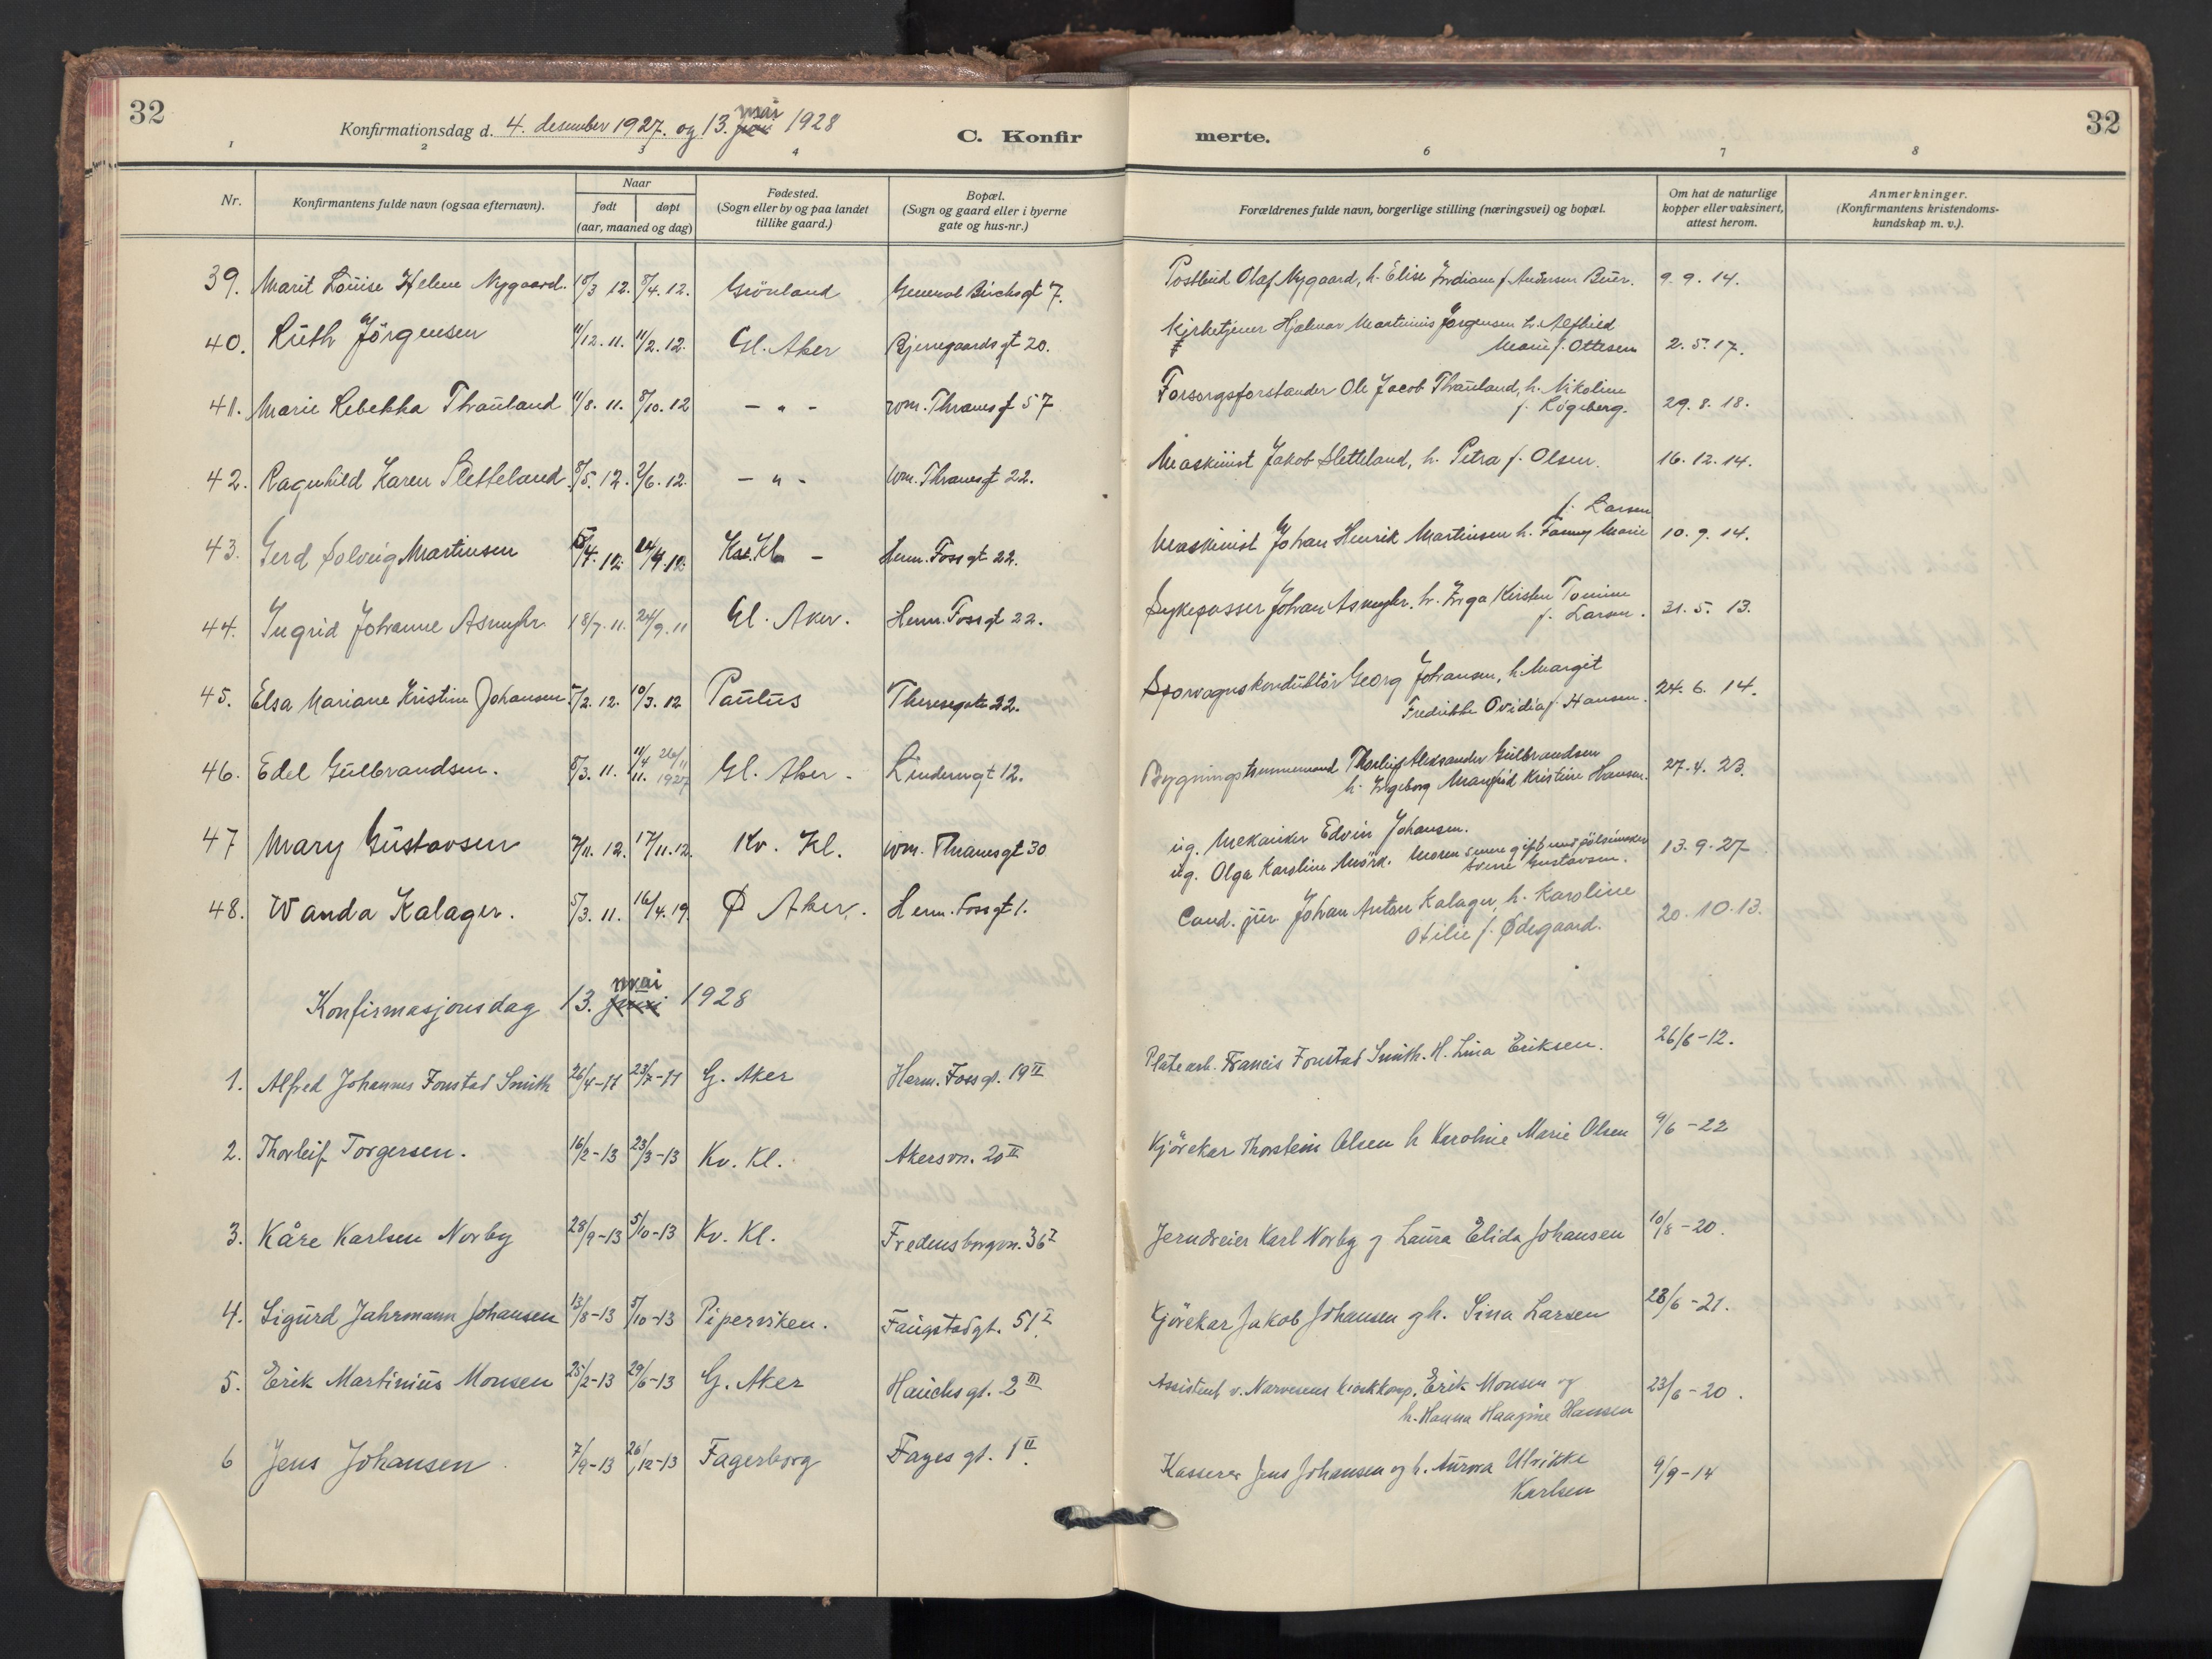 32
Konfirmationsdag d. 4. desember 1927. og 13. mai 1928
C. Konfir
merte.
32
1 2 3 4 6 7 8
Nr.
Konfirmantens fulde navn (ogsaa efternavn).
Naar
født døpt
(aar, maaned og dag)
Fødested.
(Sogn eller by og paa landet
tillike gaard.)
Bopæl.
(Sogn og gaard eller i byerne
gate og hus-nr.)
Forældrenes fulde navn, borgerlige stilling (næringsvei) og bopæl.
Om hat de naturlige
kopper eller vaksinert,
attest herom.
Anmerkninger.
(Konfirmantens kristendoms-
kundskap m. v.).
39. Marit Louise Helene Nygaard. 18/3 12. 8/4. 12. Grönland General Birchsgt 7. Postbud Olaf Nygaard, h. Elise Indiane f. Andersen Buer. 9. 9. 14.
40. Ruth Jörgensen 11/12. 11. 11/2. 12. Gl. Aker Bjerregaardsgt 20. Kirketjener Hjalmar Martinius Jörgensen h. Alfhild
Marie f. Ottesen 2. 5. 17.
41. Marie Rebekka Thrauland 11/8. 11. 8/10. 12 - " - wm. Thranesgt 57 Forsorgsforstander Ole Jacob Thrauland, h. Nikoline
f. Rögeberg. 29. 8. 18.
42. Ragnhild Karen Sletteland 8/5. 12. 2/6. 12. - " - Wm. Thranesgt 22. Maskinist Jakob Sletteland, h. Petra f. Olsen. 16. 12. 14.
f. Larsen
43. Gerd Solveig Martinsen /4. 12. /9. 12. Kl - Herm. Fossgt 22. Maskinist Johan Henrik Martinsen h. Fanny Marie 10. 9. 14.
44. Ingrid Johanne Asmyhr 18/7. 11. 24/9. 11 Gl. Aker. Herm. Fossgt 22. Sykepasser Johan Asmyhr. h. Inga Kirsten Tomine
f. Larsen. 31. 5. 13.
45. Elsa Mariane Kristine Johansen 5/2. 12. 10/3. 12 Paulus Theresegate 22. Sporvognskonduktör Georg Johansen, h. Margit
Fredrikke Ovidia f. Hansen. 24. 6. 14.
46. Edel Gulbrandsen. 8/3. 11. 11/4 11. 26/11 1927 Gl. Aker - Linderngt 12. Bygningstømmermand Thorleif Aleksander Gulbrandsen
h. Ingeborg Mangfrid Kristine Hansen. 27. 4. 23.
47 Mary Gustavsen 7/11. 12. 17/11. 12. Kv. Kl. Wm. Thranesgt 30 ug. Mekaniker Edvin Johansen.
ug. Olga Karoline Mörk. Moren senere gift med pölsemaker
Sverre Gustavsen. 13. 9. 27
48. Wanda Kalager. 5/3. 11. 16/4. 19. Ø Aker. Herm. Fossgt 1. Cand. jur Johan Anton Kalager, h. Karoline
Otilie f. Ødegaard. 20. 10. 13.
Konfirmasjonsdag 13. mai 1928
1. Alfred Johannes Fonstad Smith 26/4-11 23/7-11 G. Aker Herm. Foss gt. 19 II Platearb. Francis Fonstad Smith. H. Lina Eriksen. 26/6-12.
2. Thorleif Torgersen. 16/2-13 23/3-13 Kv. Kl. Akersvn. 20 II Kjörekar Thorstein Olsen h Karoline Marie Olsen 9/6-22
3. Kåre Karlsen Norby 28/9-13 5/10-13 Kv. Kl. Fredensborgvn. 36 I Jerndreier Karl Norby og Laura Elida Johansen 10/8-20.
4. Sigurd Jahrmann Johansen 13/8-13 5/10-13 Piperviken. Faugstadgt. 51 I Kjörekar Jakob Johansen og h. Sina Larsen 23/6-21.
5. Erik Martinius Monsen 25/2-13 29/6-13 G. Aker Hauchs gt. 2 III Assistent v. Narvesens kioskkomp. Erik Monsen og
h. Hanna Haagine Hansen 23/6-20.
6 Jens Johansen. 7/9-13 26/12-13 Fagerborg Fayes gt. 1 II Kasserer Jens Johansen og h. Aurora Ulrikke
Karlsen 9/9-14